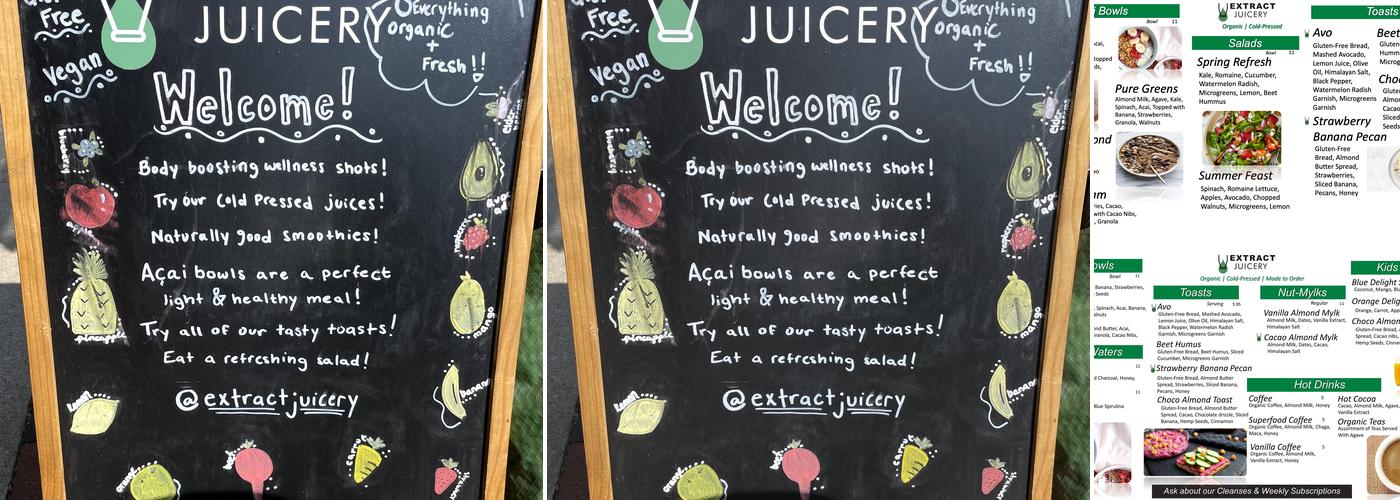 Free
Vegan
JUICERY
Everything
organic
+
Fresh!!
Welcome!
Body boosting wellness shots!
Try our Cold Pressed juices!
Naturally good smoothies!
Açai bowls are a perfect
light & healthy meal!
Try all of our tasty toasts!
Eat a refreshing salad!
@extractjuicery
pineapple
lemon
raspberry
mango
banana
carrot
Free
Vegan
JUICERY
Everything
organic
+
Fresh!!
Welcome!
Body boosting wellness shots!
Try our Cold Pressed juices!
Naturally good smoothies!
Açai bowls are a perfect
light & healthy meal!
Try all of our tasty toasts!
Eat a refreshing salad!
@extractjuicery
pineapple
lemon
raspberry
mango
banana
carrot
i Bowls
Bowl 11
Pure Greens
Almond Milk, Agave, Kale,
Spinach, Acai, Topped with
Banana, Strawberries,
Granola, Walnuts
ond
am
ries, Cacao,
with Cacao Nibs,
, Granola
EXTRACT
JUICERY
Organic | Cold-Pressed
Salads
Bowl 11
Spring Refresh
Kale, Romaine, Cucumber,
Watermelon Radish,
Microgreens, Lemon, Beet
Hummus
Summer Feast
Spinach, Romaine Lettuce,
Apples, Avocado, Chopped
Walnuts, Microgreens, Lemon
Toasts
Avo
Gluten-Free Bread,
Mashed Avocado,
Lemon Juice, Olive
Oil, Himalayan Salt,
Black Pepper,
Watermelon Radish
Garnish, Microgreens
Garnish
Strawberry
Banana Pecan
Gluten-Free
Bread, Almond
Butter Spread,
Strawberries,
Sliced Banana,
Pecans, Honey
Beet
Gluten-
Humm
Microg
Choc
Gluten-
Bread,
Spread,
Cacao,
Sliced
Seeds
EXTRACT
JUICERY
Organic | Cold-Pressed | Made to Order
owls
Bowl 11
Banana, Strawberries,
Seeds
Spinach, Acai, Banana,
nd Butter, Acai,
ranola, Cacao Nibs
Waters
11
d Charcoal, Honey,
11
Blue Spirulina
Toasts
Serving 5.95
Avo
Gluten-Free Bread, Mashed Avocado,
Lemon Juice, Olive Oil, Himalayan Salt,
Black Pepper, Watermelon Radish
Garnish, Microgreens Garnish
Beet Humus
Gluten-Free Bread, Beet Humus, Sliced
Cucumber, Microgreens Garnish
Strawberry Banana Pecan
Gluten-Free Bread, Almond Butter
Spread, Strawberries, Sliced Banana,
Pecans, Honey
Choco Almond Toast
Gluten-Free Bread, Almond Butter
Spread, Cacao, Chocolate drizzle, Sliced
Banana, Hemp Seeds, Cinnamon
Nut-Mylks
Regular 11
Vanilla Almond Mylk
Almond Milk, Dates, Vanilla Extract,
Himalayan Salt
Cacao Almond Mylk
Almond Milk, Dates, Cacao,
Himalayan Salt
Kids
Blue Delight S
Coconut, Mango, Blu
Orange Deligh
Orange, Carrot, App
Choco Almon
Gluten-Free Bread,
Spread, Cacao nibs,
Hemp Seeds, Cinna
Hot Drinks
Coffee 5
Organic Coffee, Almond Milk, Honey
Superfood Coffee 5
Organic Coffee, Almond Milk, Chaga,
Maca, Honey
Vanilla Coffee 5
Organic Coffee, Almond Milk,
Vanilla Extract, Honey
Hot Cocoa
Cacao, Almond Milk, Agave,
Vanilla Extract
Organic Teas
Assortment of Teas Served
With Agave
Ask about our Cleanses & Weekly Subscriptions